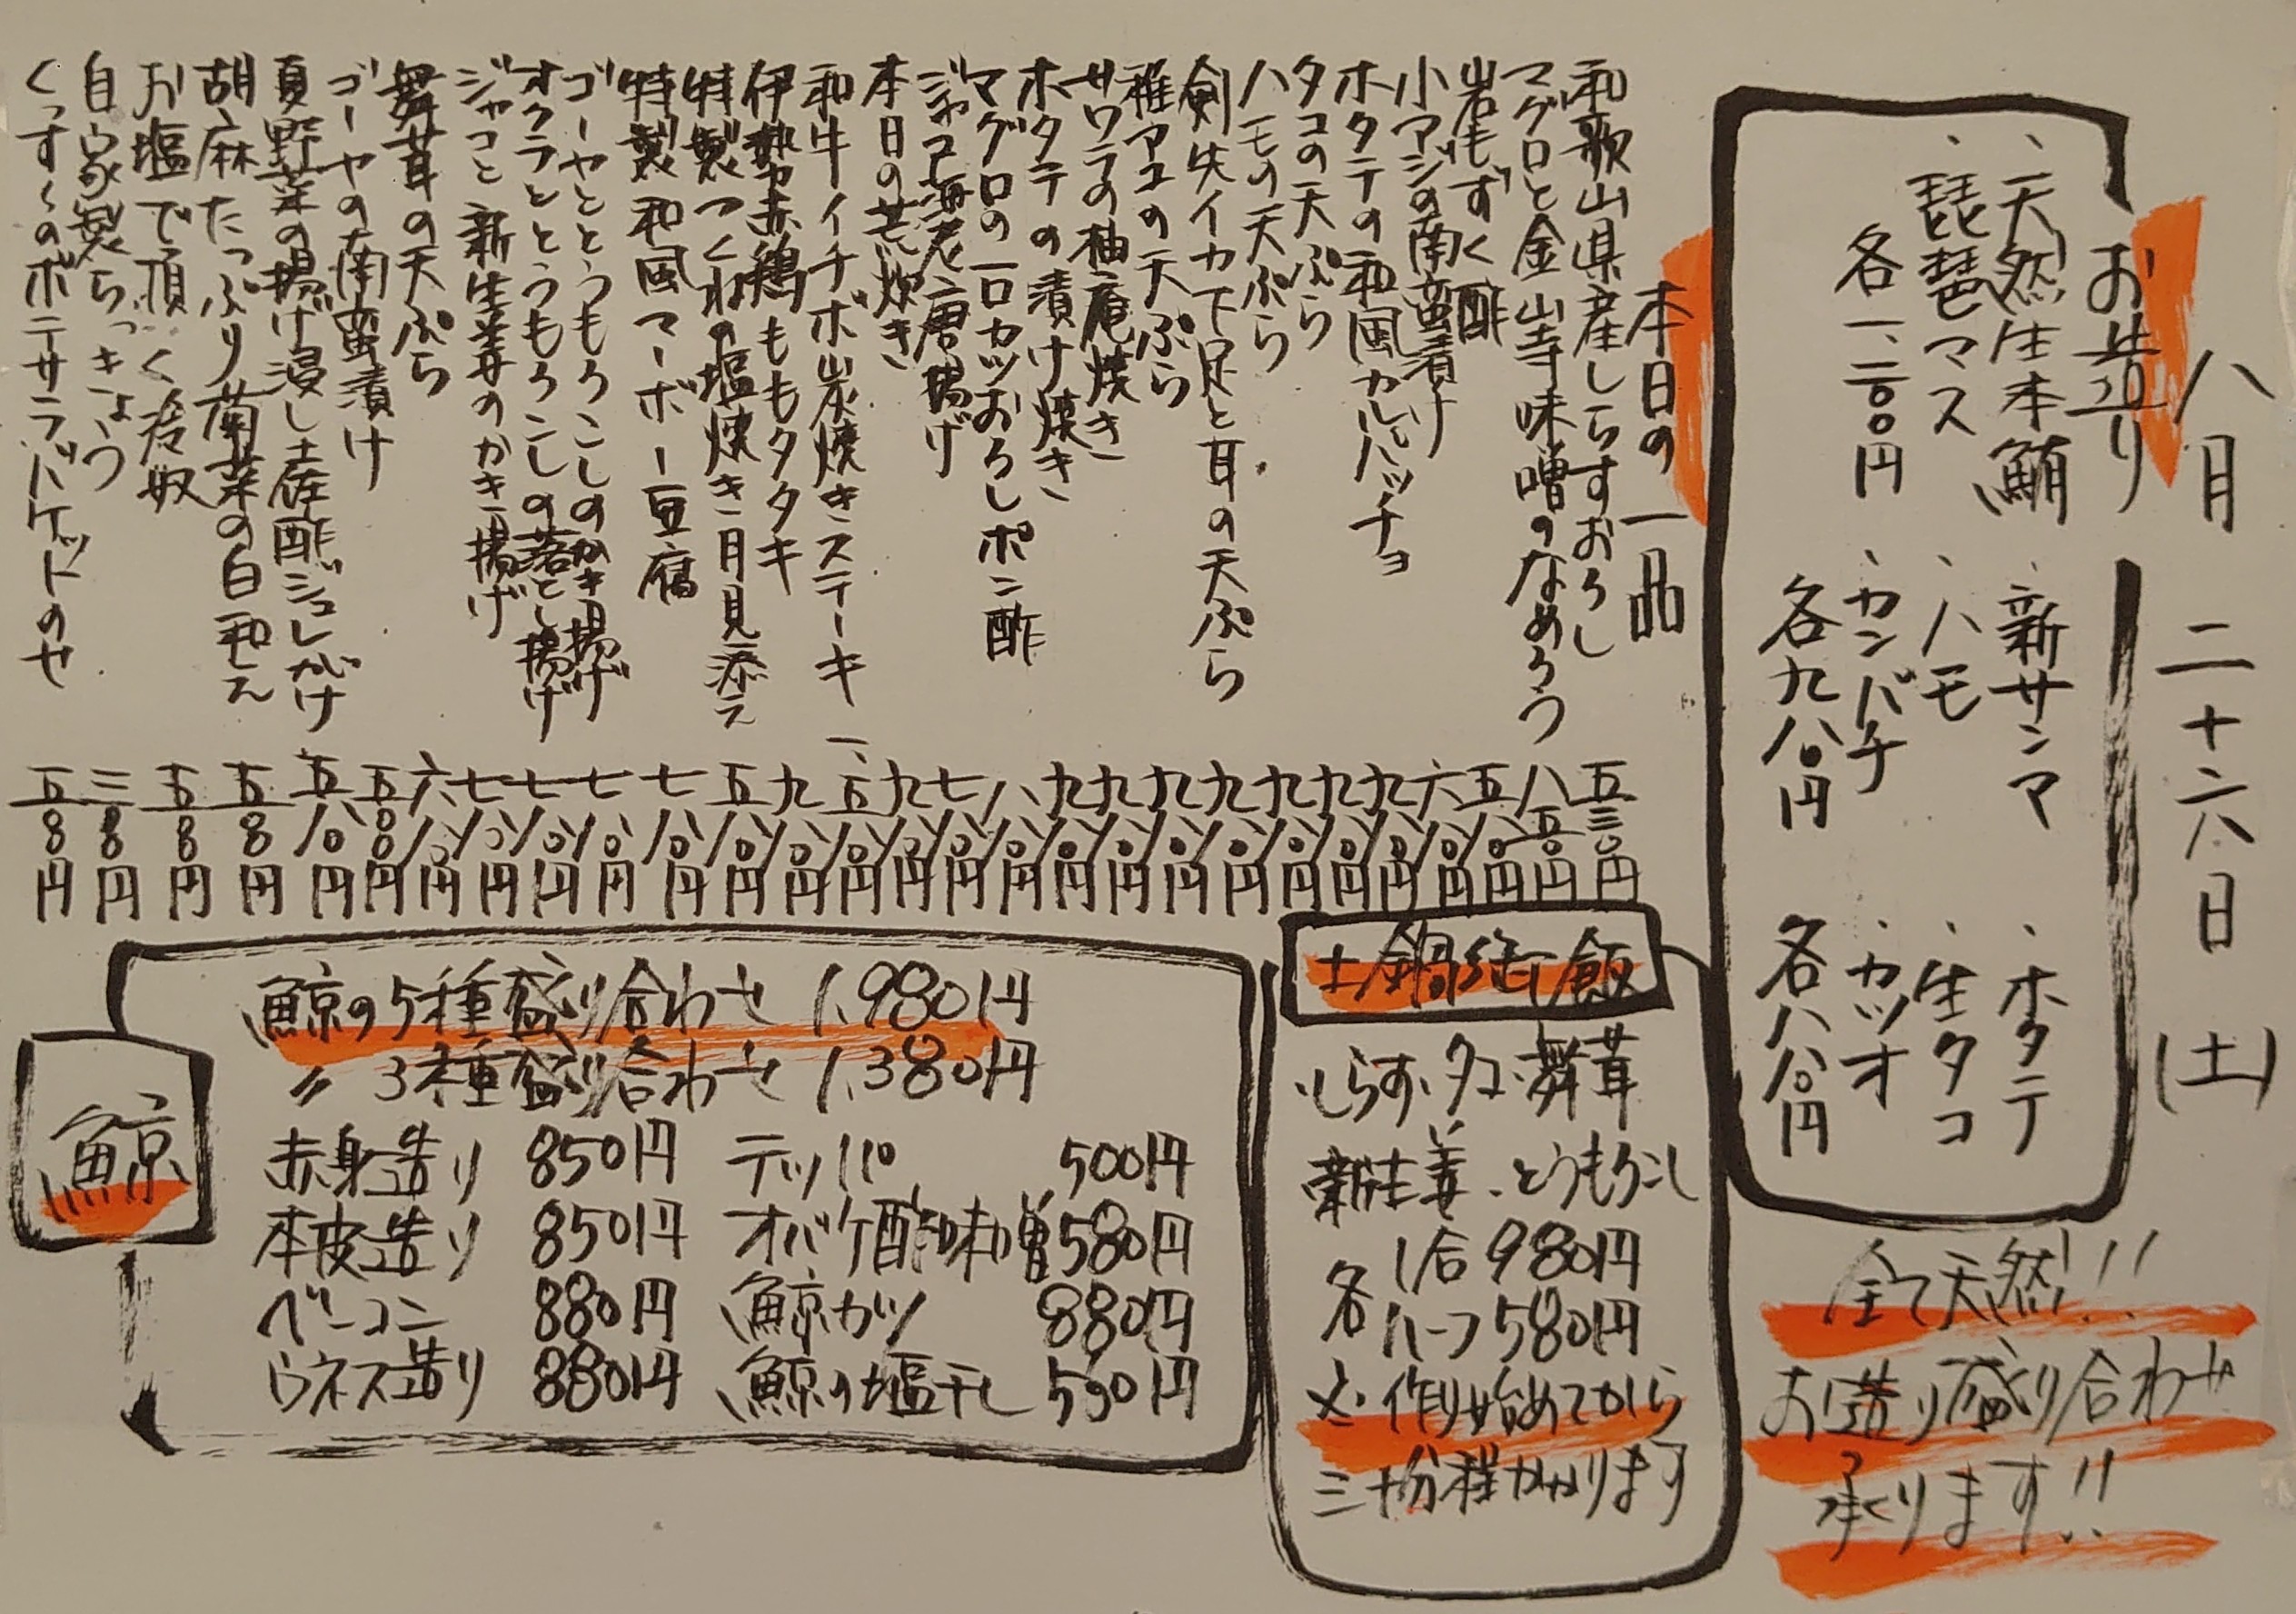 八月二十六日(土)
お造り
、天然生本鮪
、琵琶マス
各一、二〇〇円
、新サンマ
、ハモ
、カンパチ
各九八〇円
、ホタテ
、生タコ
、カツオ
各八八〇円
全て天然!!
お造り盛り合わせ
承ります!!
本日の一品
和歌山県産しらすおろし 五三〇円
マグロと金山寺味噌のなめろう 八五〇円
岩もずく酢 五八〇円
小アジの南蛮漬け 六八〇円
ホタテの和風カルパッチョ 九八〇円
タコの天ぷら 九八〇円
ハモの天ぷら 九八〇円
剣先イカ下足と耳の天ぷら 九八〇円
稚アユの天ぷら 九八〇円
サワラの柚庵焼き 九八〇円
ホタテの漬け焼き 九八〇円
マグロの一口カツおろしポン酢 八八〇円
ジャコ海老唐揚げ 七八〇円
本日の荒炊き 九八〇円
和牛イチボ炭焼きステーキ 一、五八〇円
伊勢赤鶏ももタタキ 九八〇円
特製つくねの塩焼き月見添え 五八〇円
特製和風マーボー豆腐 七八〇円
ゴーヤととうもろこしのかき揚げ 七八〇円
オクラととうもろこしの落とし揚げ 七八〇円
ジャコと新生姜のかき揚げ 七八〇円
舞茸の天ぷら 六八〇円
ゴーヤの南蛮漬け 五〇〇円
夏野菜の揚げ浸し土佐酢ジュレがけ 五八〇円
胡麻たっぷり菊菜の白和え 五〇〇円
お塩で頂く冷奴 五〇〇円
自家製らっきょう 三〇〇円
くっすくのポテサラバケットのせ 五〇〇円
土鍋御飯
・しらす・タコ・舞茸
新生姜・とうもろこし
各 1合 980円
ハーフ 580円
※作り始めてから
三十分程かかります
鯨
鯨の5種盛り合わせ 1,980円
〃 3種盛り合わせ 1,380円
赤身造り 850円 テッパ 500円
本皮造り 850円 オバケ酢味噌 580円
ベーコン 880円 鯨カツ 880円
ウネス造り 880円 鯨の塩干し 590円